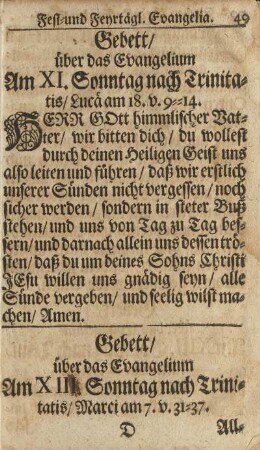 Fest- und Feyrtägl. Evangelia. 49
Gebett/
über das Evangelium
Am XI. Sonntag nach Trinita-
tis/ Lucä am 18. v. 9--14.
HERR GOtt himmlischer Vat-
ter/ wir bitten dich/ du wollest
durch deinen Heiligen Geist uns
also leiten und führen/ daß wir erstlich
unserer Sünden nicht vergessen/ noch
sicher werden/ sondern in steter Buß
stehen/ und uns von Tag zu Tag bes-
sern/ und darnach allein uns dessen trö-
sten/ daß du um deines Sohns Christi
JEsu willen uns gnädig seyn/ alle
Sünde vergeben/ und seelig wilst ma-
chen/ Amen.
Gebett/
über das Evangelium
Am XII. Sonntag nach Trini-
tatis/ Marci am 7. v. 31-37.
D All-